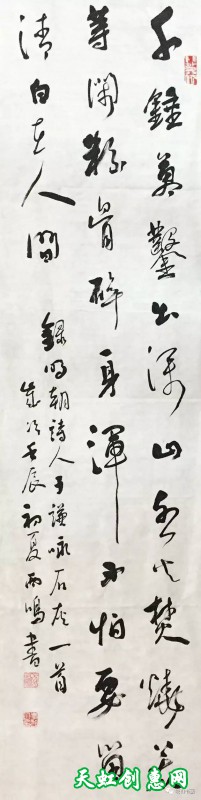 千錘萬鑿出深山烈火焚燒若
等閑粉骨碎身渾不怕要留
清白在人間
錄明朝詩人于謙詠石灰一首
歲次壬辰初夏雨鳴書
天虹创惠网